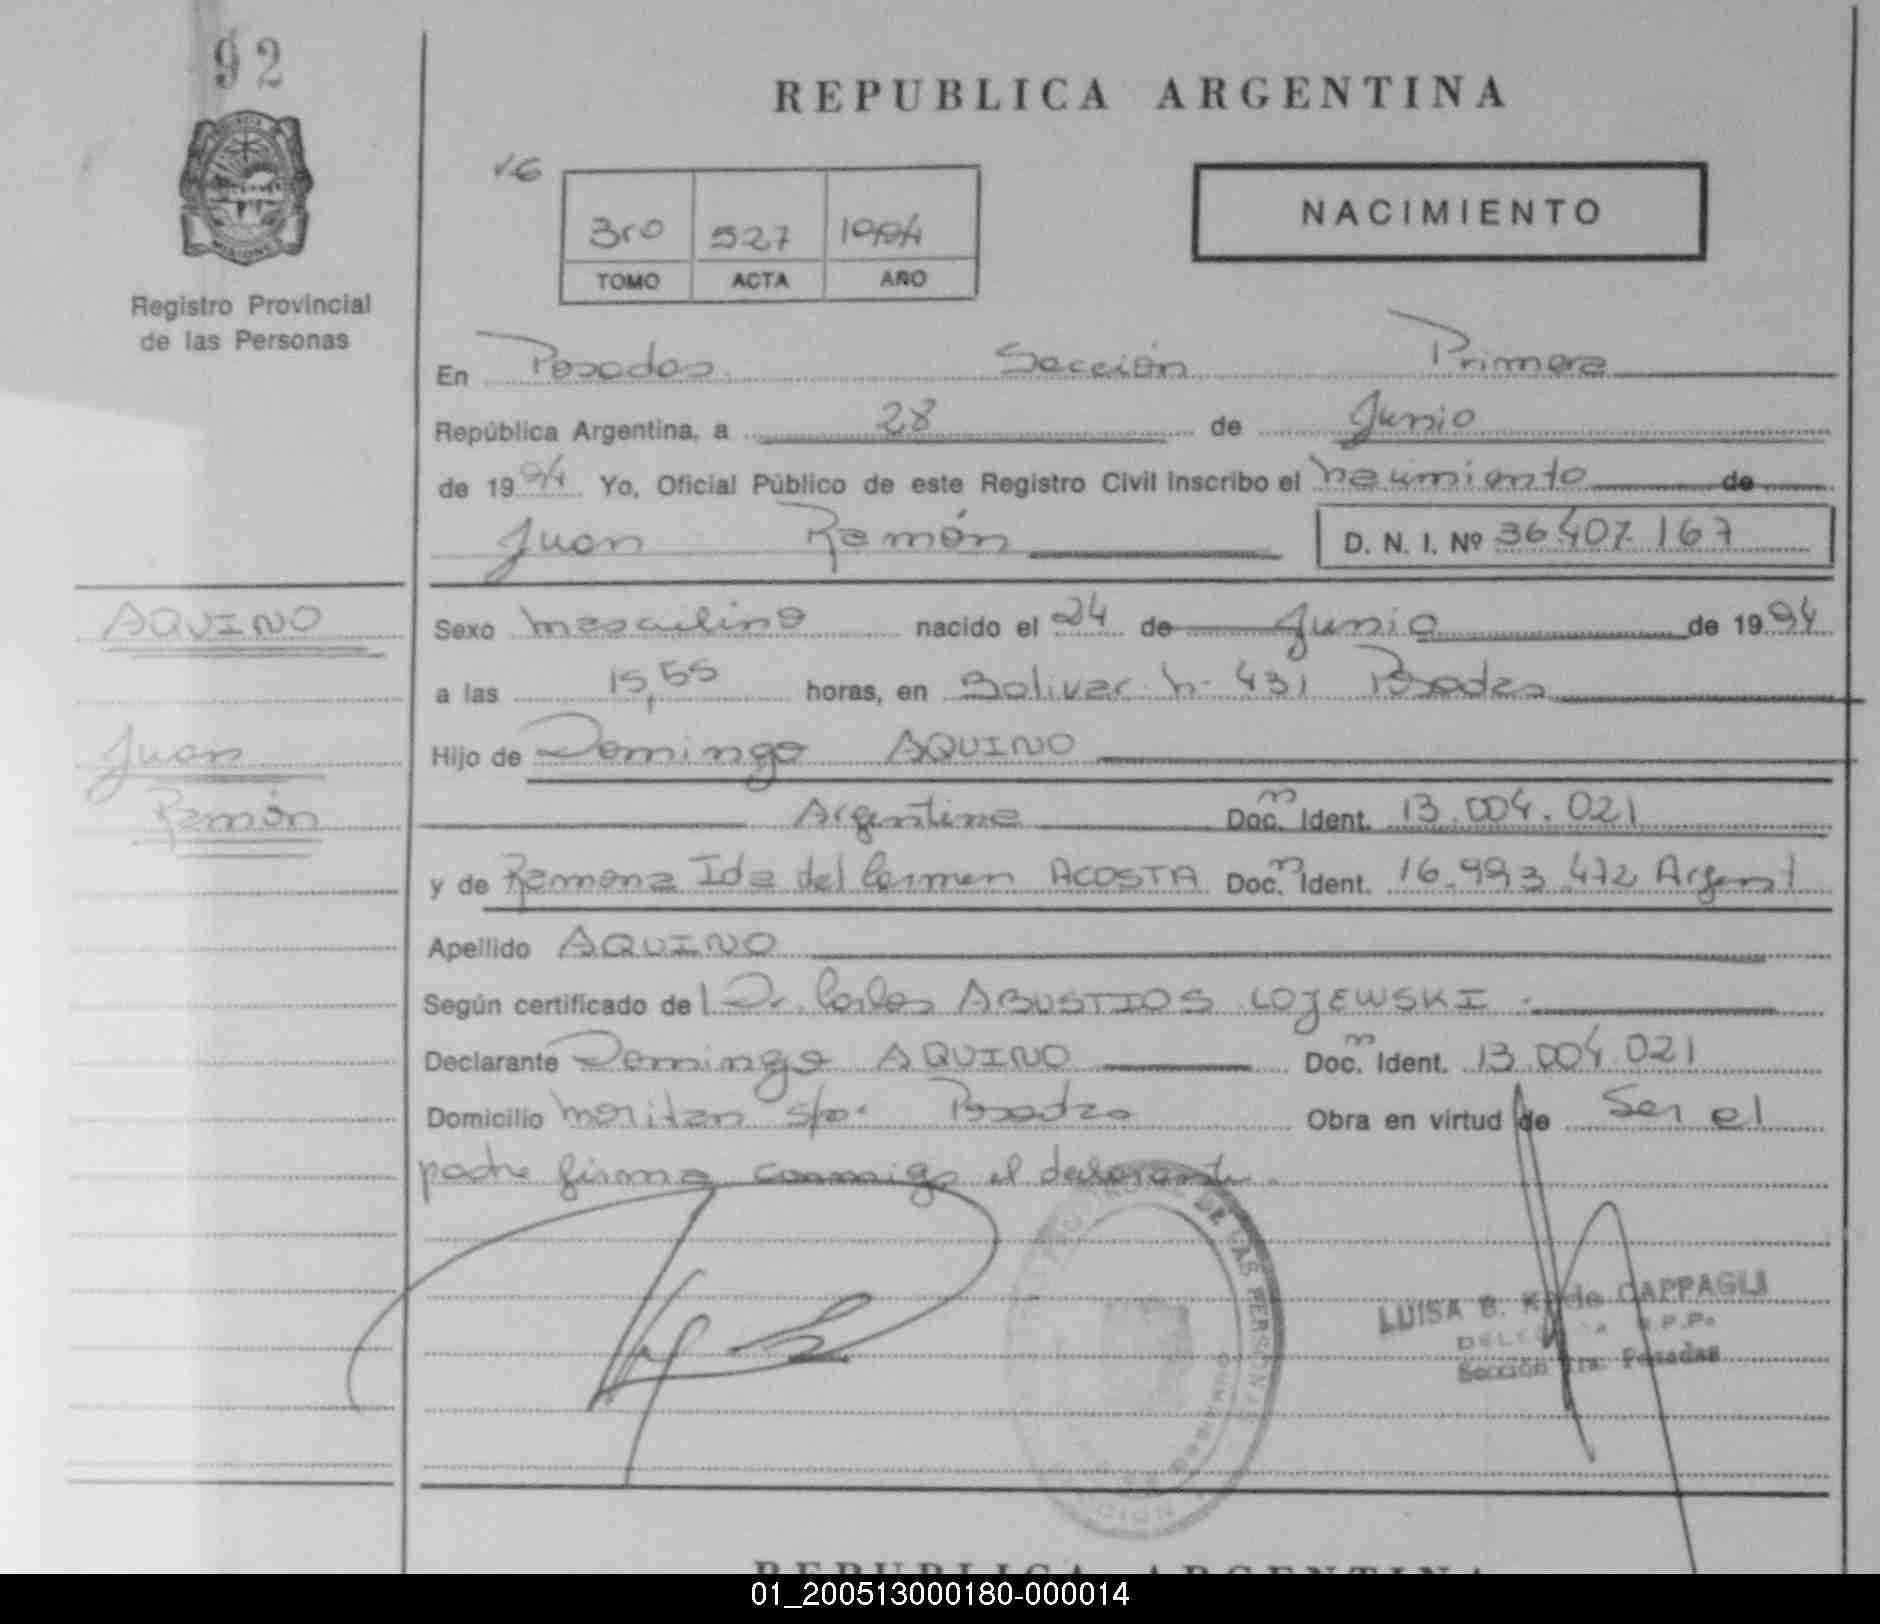 92
REPUBLICA ARGENTINA
NACIMIENTO
3ro 527 1994
TOMO ACTA AÑO
Registro Provincial
de las Personas
En Posadas Sección Primera
República Argentina, a 28 de Junio
de 1994 Yo, Oficial Público de este Registro Civil inscribo el nacimiento de
Juan Ramón D. N. I. Nº 36.407.167
AQUINO
Juan
Ramón
Sexo masculino nacido el 24 de Junio de 1994
a las 15,55 horas, en Bolivar n- 431 Posadas
Hijo de Domingo AQUINO
Argentina Doc. Ident. 13.004.021
y de Ramona Ida del Carmen ACOSTA Doc. Ident. 16.993.472 Argent
Apellido AQUINO
Según certificado de l Dr. Carlos ABUSTIOS LOJEWSKI.
Declarante Domingo AQUINO Doc. Ident. 13.004.021
Domicilio Posadas Obra en virtud de Ser el
padre firma conmigo el declarante.
DE LAS PERSONAS
LUISA B. de CAPPAGLI
R.P.P.
Sección 1ra. Posadas
REPUBLICA ARGENTINA
01_200513000180-000014